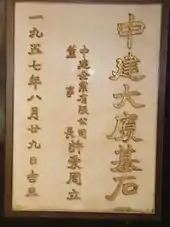 中建大廈基石
中建企業有限公司
董事長許愛周立
一九五七年八月廿九日吉旦